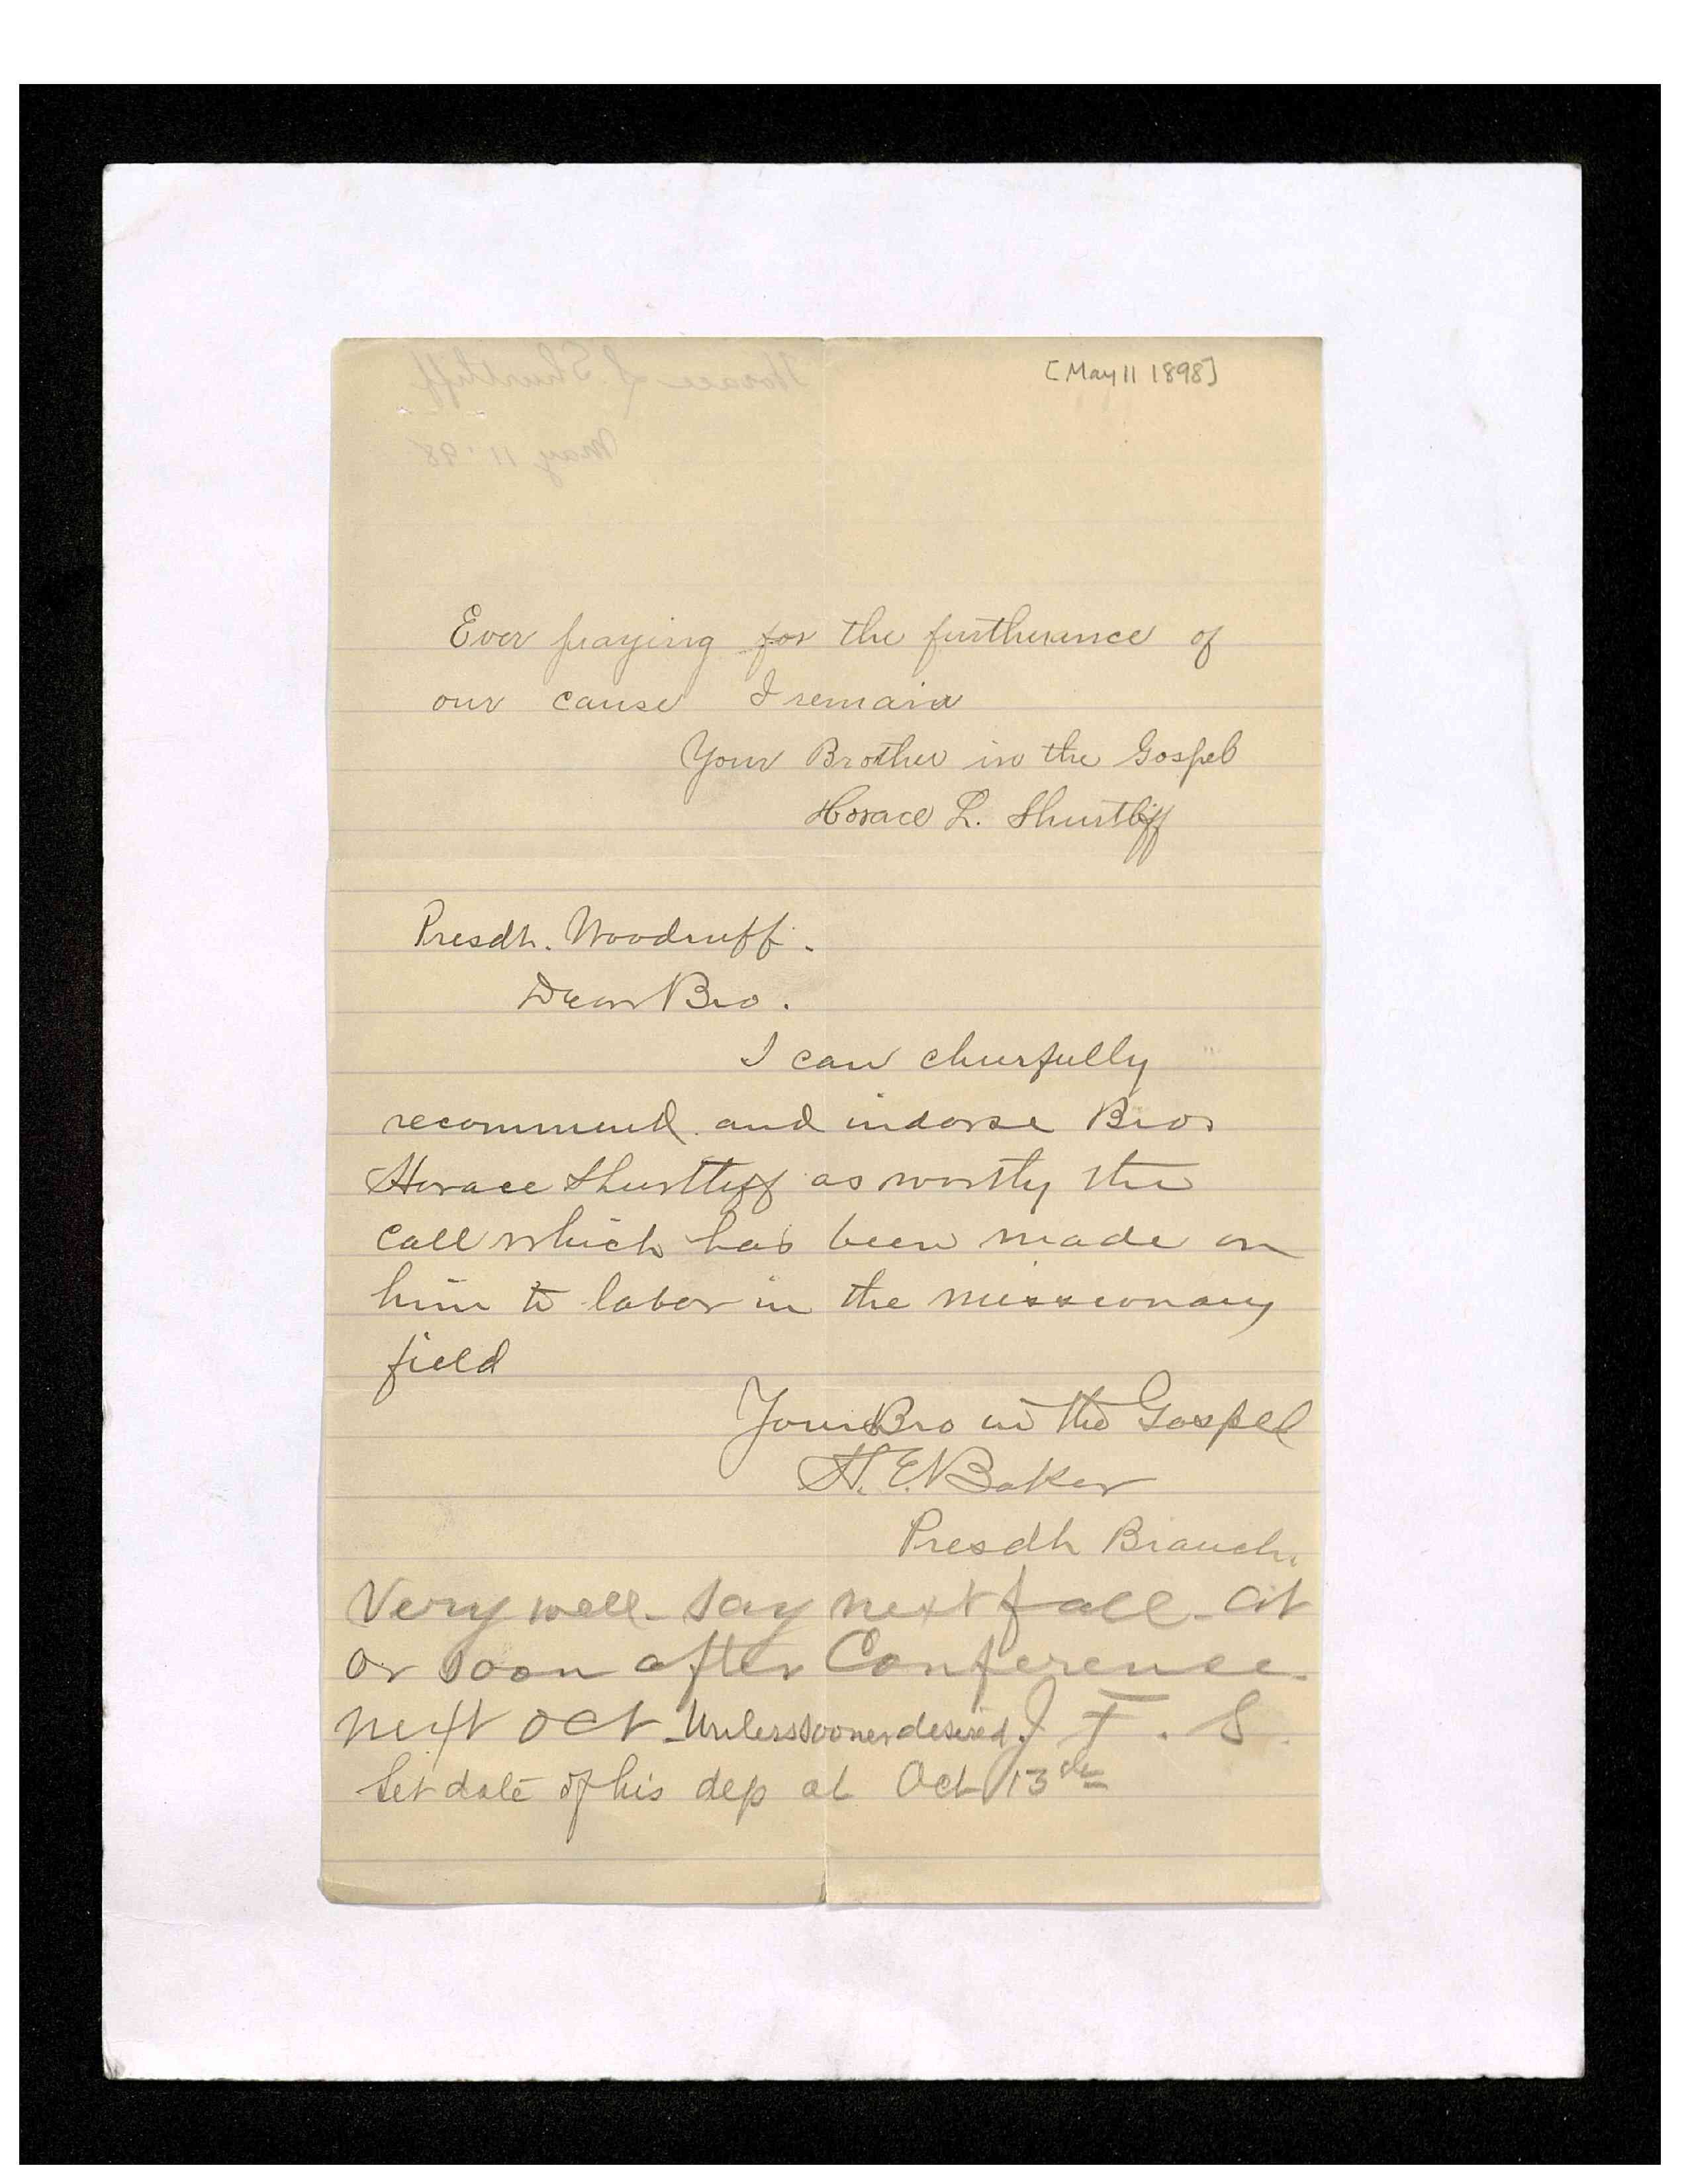 [May 11 1898]
Horace L Shurtliff
May 11 '98
Ever praying for the furtherance of
our cause I remain
Your Brother in the Gospel
Horace L. Shurtliff
Presdt. Woodruff.
Dear Bro.
I can cheerfully
recommend and indorse Bro.
Horace Shurtliff as worthy the
call which has been made on
him to labor in the missionary
field
Your Bro in the Gospel
H. E. Baker
Presdt Branch.
Very well - say next fall - at
or soon after Conference.
next Oct - Unless sooner desired. J F. S.
Set date of his dep at Oct 13th